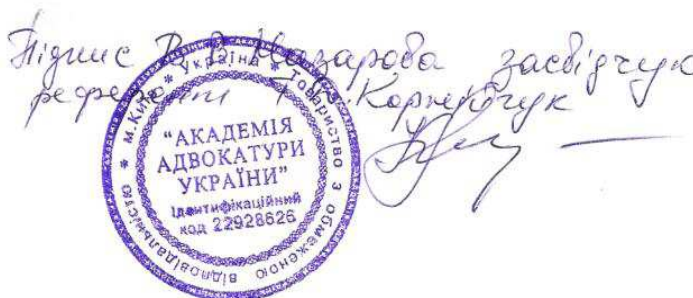 Підпис В. В. Назарова засвідчую
референт Т. В. Корнейчук
* Україна * Товариство з обмеженою відповідальністю * м. Київ
"АКАДЕМІЯ
АДВОКАТУРИ
УКРАЇНИ"
Ідентифікаційний
код 22928626